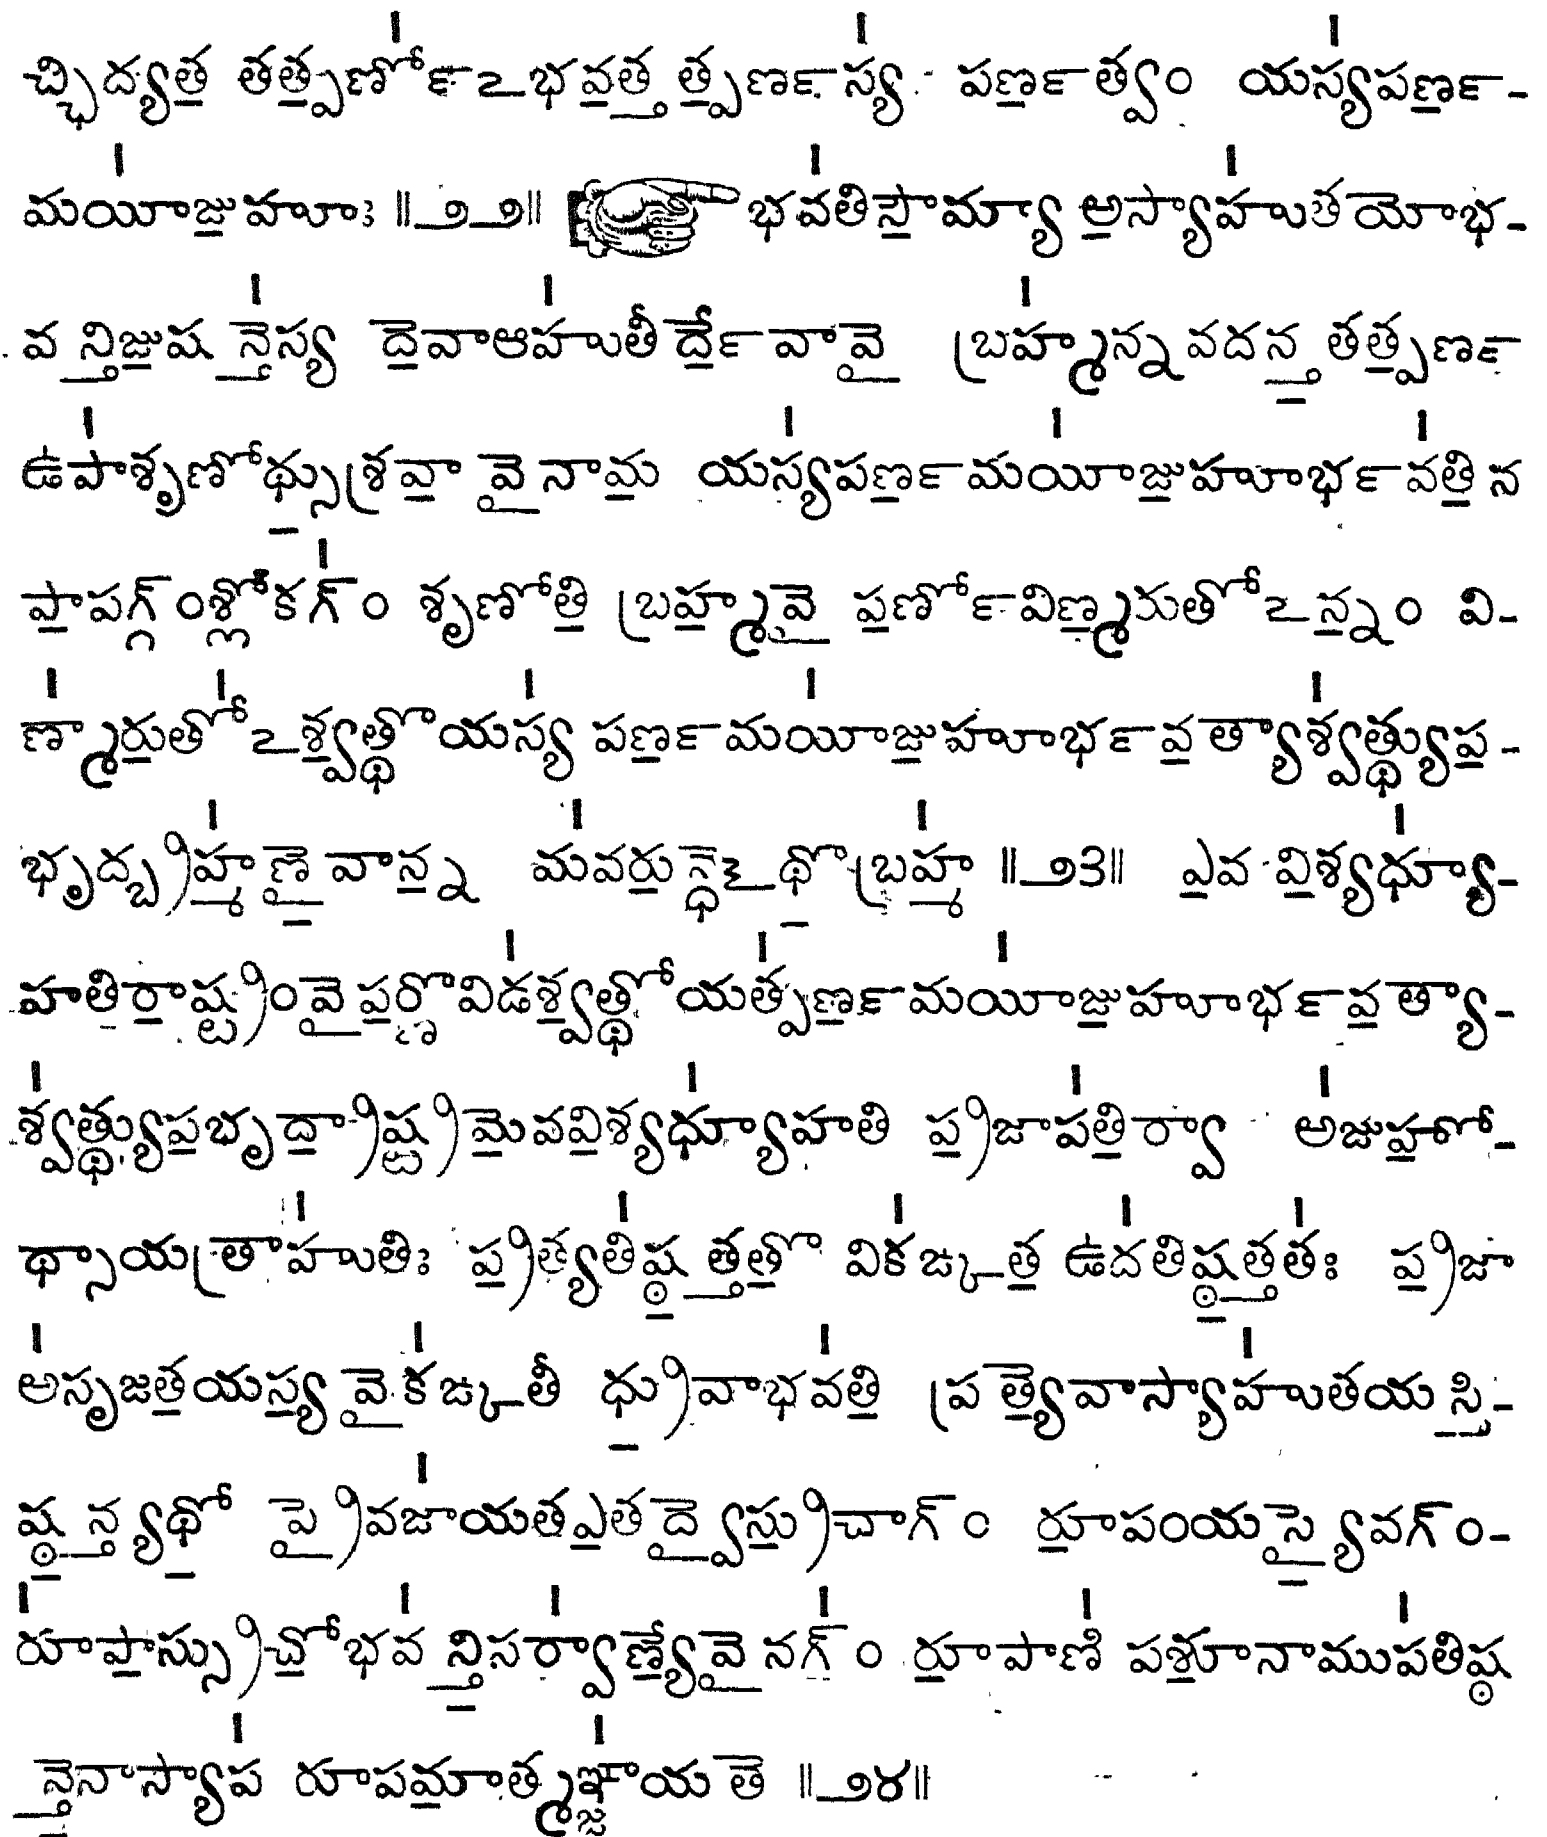 చ్ఛిద్యత తత్పర్ణోఽభవత్తత్పర్ణస్య పర్ణత్వం యస్యపర్ణ-
మయీజుహూః ॥౨౨॥ భవతిసౌమ్యా అస్యాహుతయోభ-
వన్తిజుషన్తేస్య దేవాఆహుతీర్దేవావై బ్రహ్మన్నవదన్త తత్పర్ణ
ఉపాశృణోథ్సుశ్రవా వై నామ యస్యపర్ణమయీజుహూర్భవతి న
పాపగ్గ్ంశ్లోకగ్ం శృణోతి బ్రహ్మవై పర్ణోవిణ్మరుతోఽన్నం వి-
ణ్మారుతోఽశ్వత్థోయస్య పర్ణమయీజుహూర్భవత్యాశ్వత్థ్యుప-
భృద్బ్రహ్మణైవాన్న మవరున్ధేఽథోబ్రహ్మ ॥౨౩॥ ఎవ విశ్యధ్యూ-
హతిరాష్ట్రంవై పర్ణోవిడశ్వత్థోయత్పర్ణమయీజుహూర్భవత్యా-
శ్వత్థ్యుపభృద్రాష్ట్రమేవవిశ్యధ్యూహతి ప్రజాపతిర్వా అజుహోు-
థ్సాయత్రాహుతిః ప్రత్యతిష్ఠత్తతో వికఙ్కత ఉదతిష్ఠత్తతః ప్రజా
అసృజతయస్య వైకఙ్కతీ ధ్రువాభవతి ప్రత్యేవాస్యాహుతయస్తి-
ష్ఠన్త్యథో ప్రైవజాయతఎతద్వైస్రుచాగ్ం రూపంయస్యైవగ్ం-
రూపాస్స్రుచోభవన్తిసర్వాణ్యేవైనగ్ం రూపాణి పశూనాముపతిష్ఠ
న్తేనాస్యాప రూపమాత్మఞ్జాయతే ॥౨౪॥